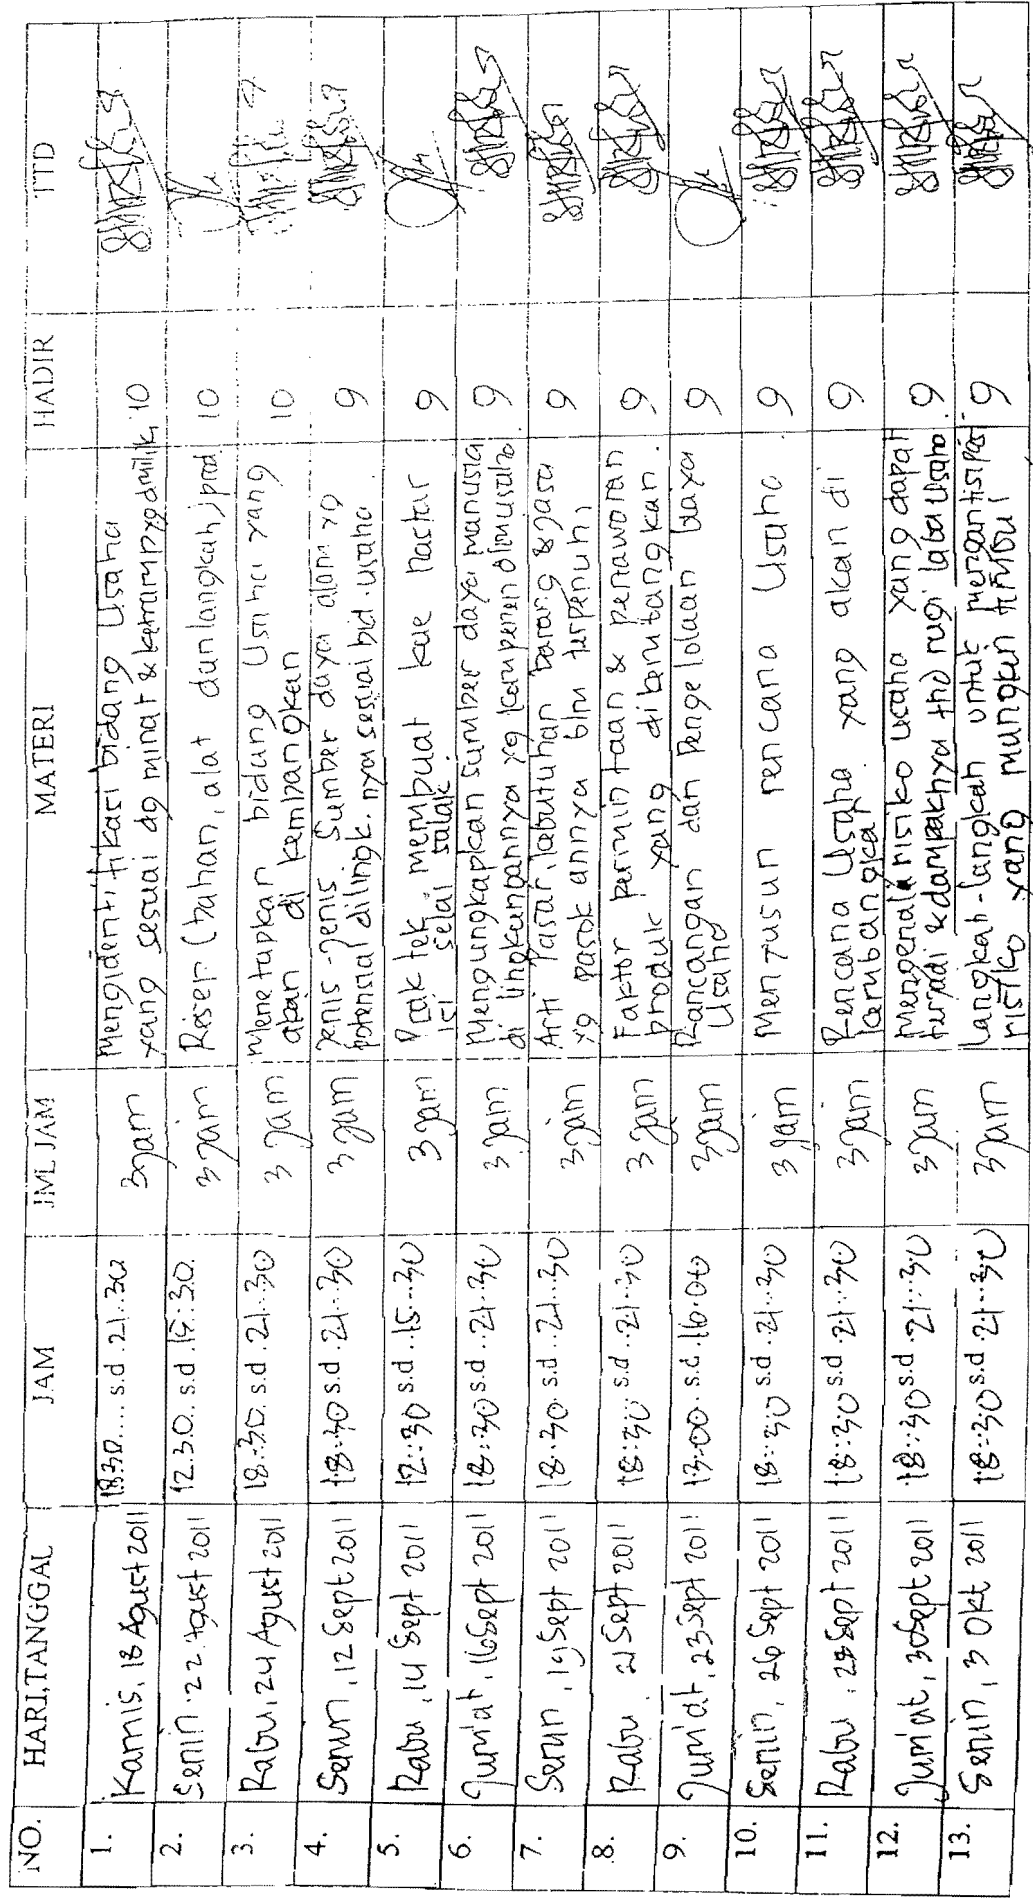 NO. HARI,TANGGAL JAM JML JAM MATERI HADIR TTD
1. Kamis, 18 Agust 2011 18.30.... s.d .21..30 3 jam Mengidentifikasi bidang Usaha 10
yang sesuai dg minat & ketrampyg dmilik,
2. Senin 22 Agust 2011 12.30.. s.d .15:.30. 3 jam Reser (bahan, alat dan langkah, prod 10
3. Rabu, 24 Agust 2011 18:.30. s.d .21..30 3 jam Menetapkan bidang Usaha yang 10
akan di kembangkan
4. Senin, 12 Sept 2011 18:.30 s.d .21..30 3 jam Jenis-jenis Sumber daya alam yg 9
potensial dilingk. nya sesuai bid. usaha.
5. Rabu, 14 Sept 2011 12:.30 s.d .15...30 3 jam Praktek membuat kue nastar 9
isi selai salak.
6. Jum'at, 16 Sept 2011 18:.30 s.d .21..30 3 jam Mengungkapkan sumber daya manusia 9
di lingkungannya yg kompeten dlmusaha
7. Senin, 19 Sept 2011 18.30. s.d .21..30 3 jam Arti Pasar, kebutuhan barang & jasa 9
yg pasok annya blm terpenuhi
8. Rabu, 21 Sept 2011 18:.30. s.d .21..30 3 jam Faktor permintaan & penawaran 9
produk yang di kembangkan.
9. Jum'at, 23 Sept 2011 13.:00. s.d .16.00 3 jam Rancangan dan Pengelolaan biaya 9
Usaha
10. Senin, 26 Sept 2011 18:.30 s.d .21..30 3 jam Menyusun rencana Usaha 9
11. Rabu, 28 Sept 2011 18:.30 s.d .21:.30 3 jam Rencana Usaha yang akan di 9
kembangkan.
12. Jum'at, 30 Sept 2011 18:.30 s.d .21:.30 3 jam Mengenala risiko usaha yang dapat 9
terjadi & dampaknya thd rugi laba usaha
13. Senin, 3 Okt 2011 18:.30 s.d .21..30 3 jam Langkah-langkah untuk mengantisipasi 9
risiko yang mungkin timbul